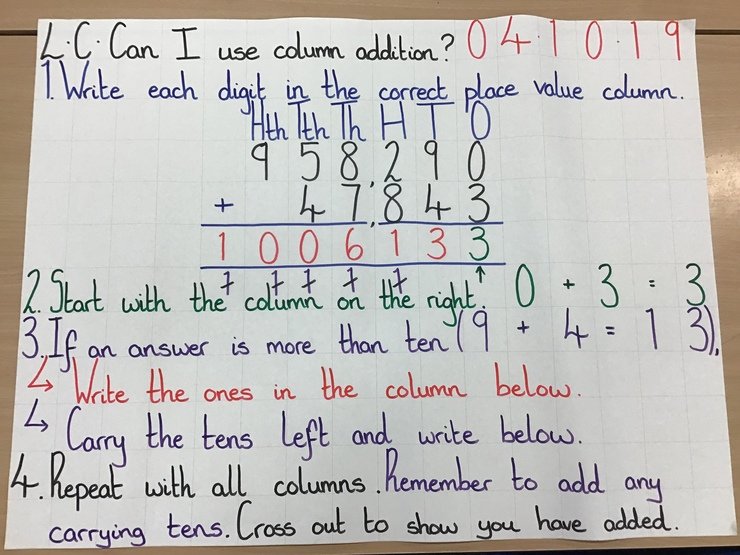 L.C. Can I use column addition? 04.10.19
1. Write each digit in the correct place value column.
Hth Tth Th H T O
9 5 8, 2 9 0
+ 4 7, 8 4 3
1 0 0 6 1 3 3
1 1 1 1 1 ↑
2. Start with the column on the right. 0 + 3 = 3
3. If an answer is more than ten (9 + 4 = 13).
↳ Write the ones in the column below.
↳ Carry the tens left and write below.
4. Repeat with all columns. Remember to add any
carrying tens. Cross out to show you have added.